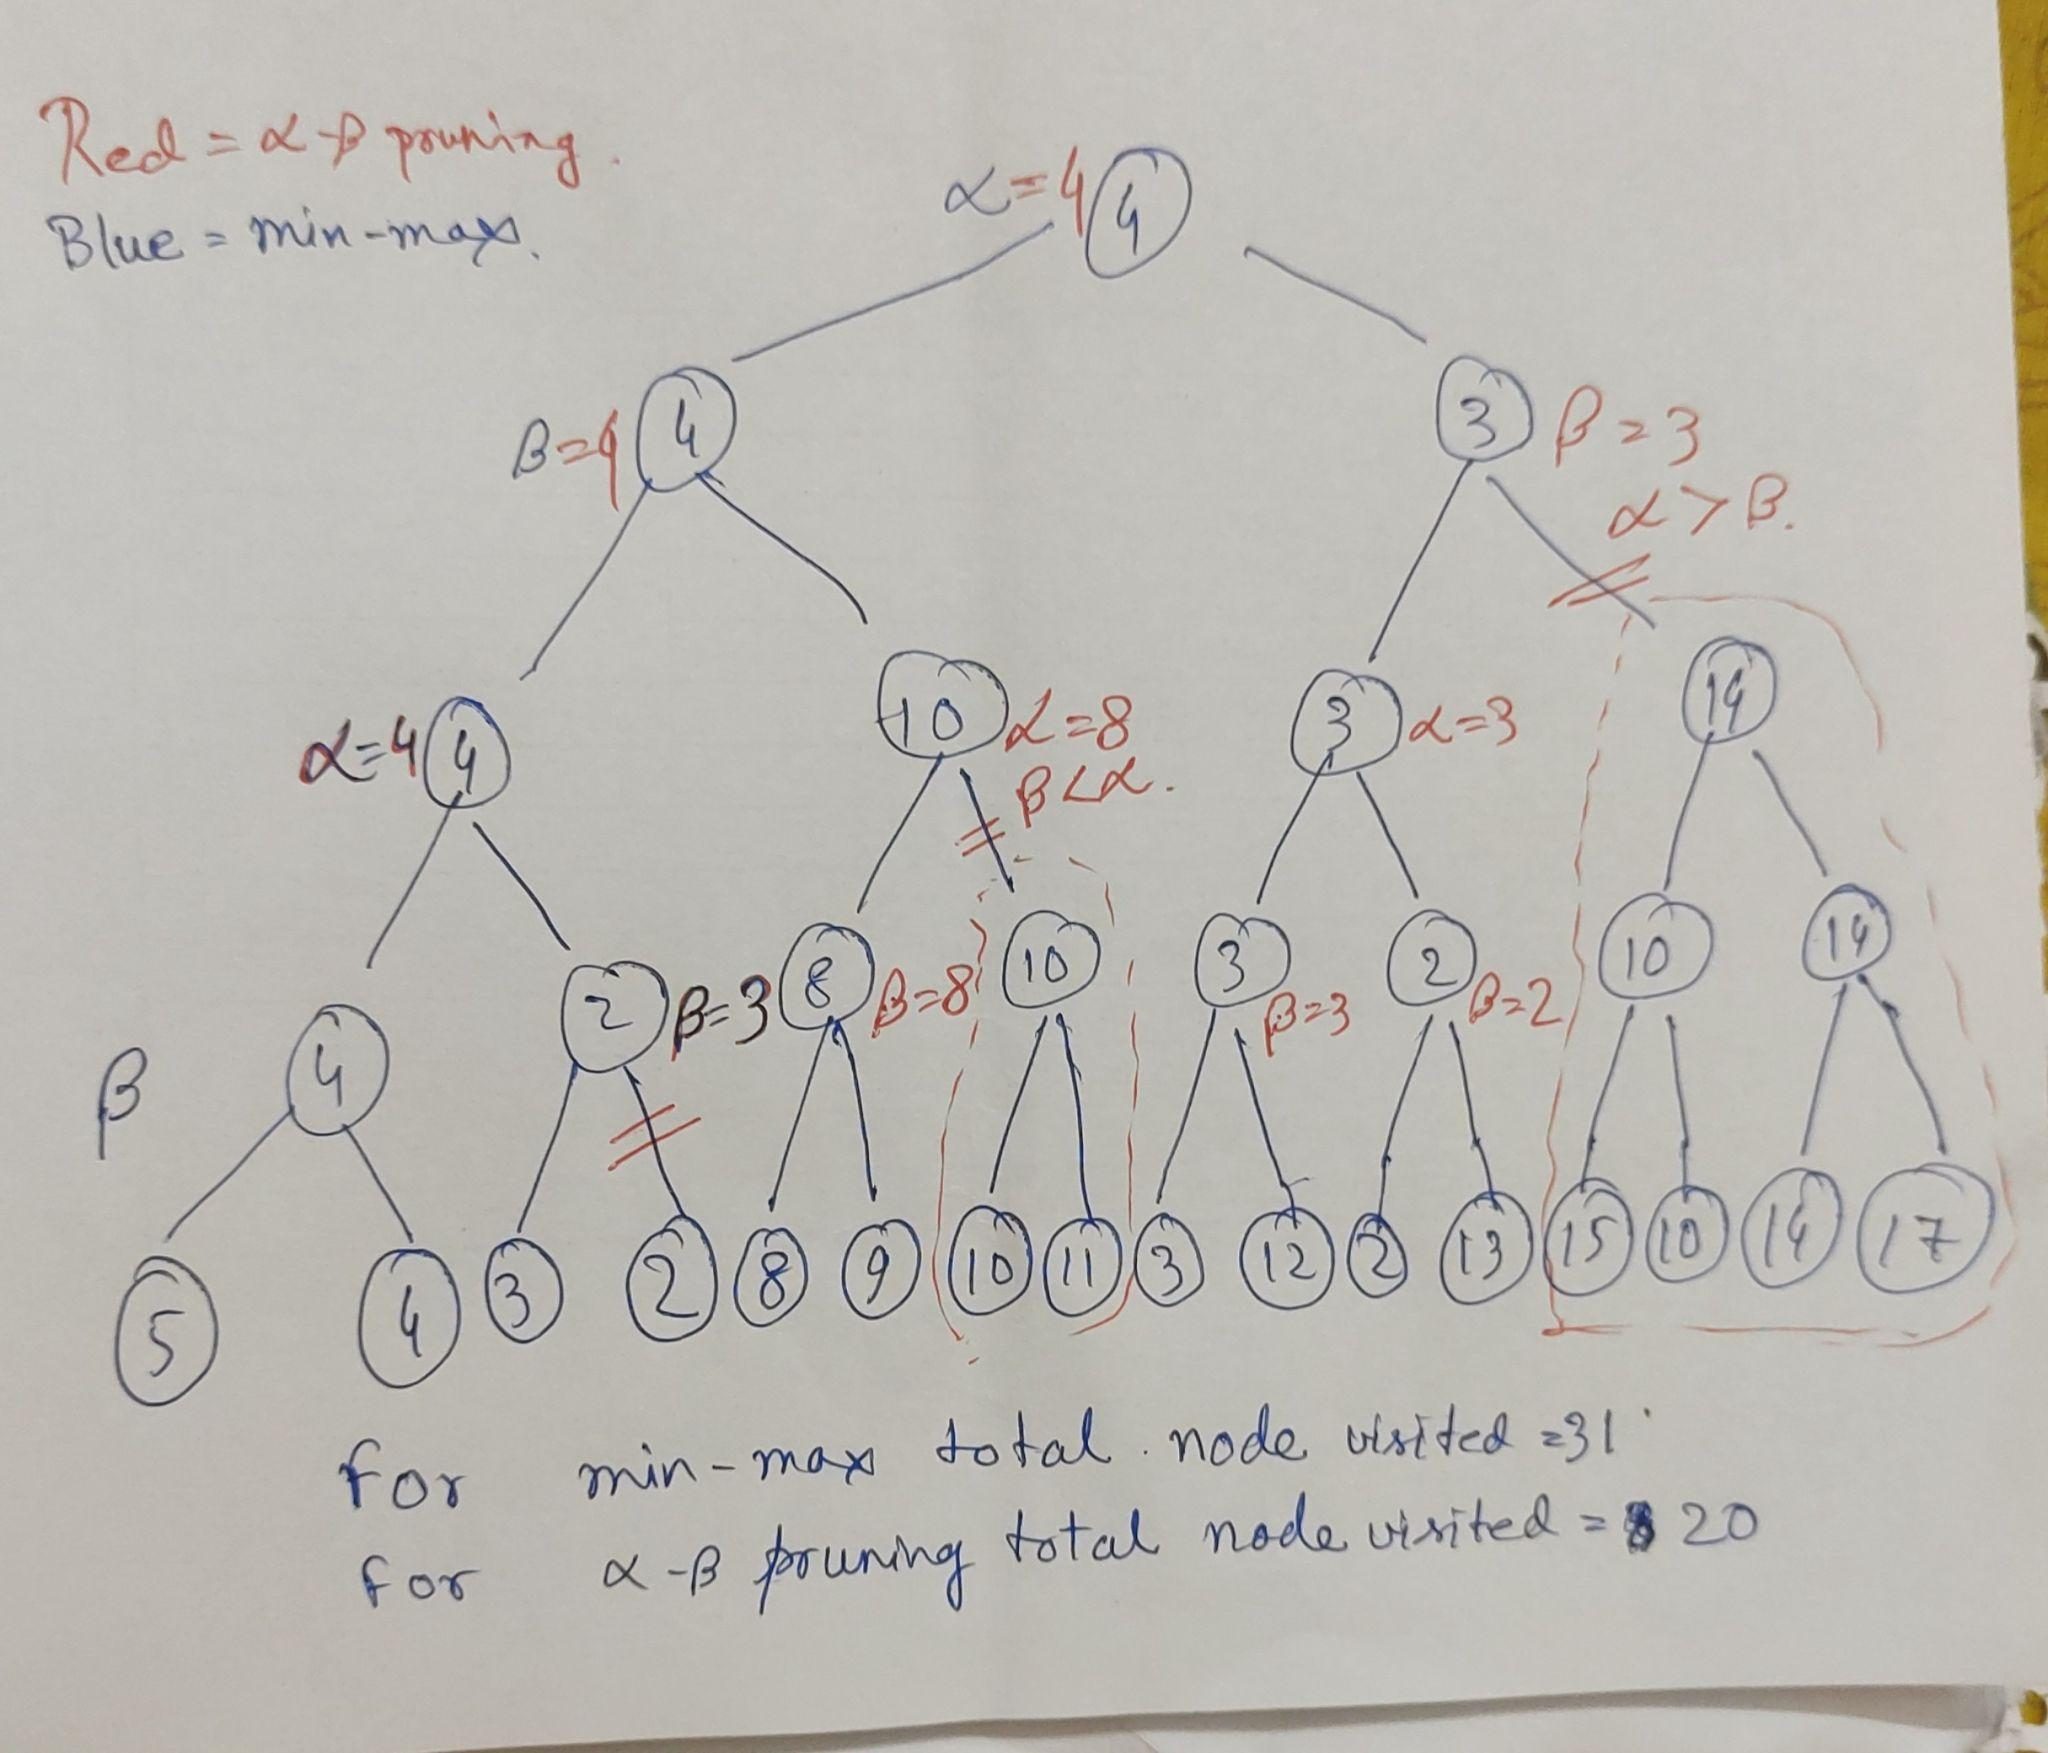 Red = α-β pruning.
Blue = min-max.
α=4 4
β=4 4
3 β=3
α>β.
α=4 4
10 α=8
β<α.
3 α=3
14
β
4
2 β=3
8 β=8
10
3 β=3
2 β=2
10
14
5 4 3 2 8 9 10 11 3 12 2 13 15 10 14 17
for min-max total node visited =31
for α-β pruning total node visited = 20